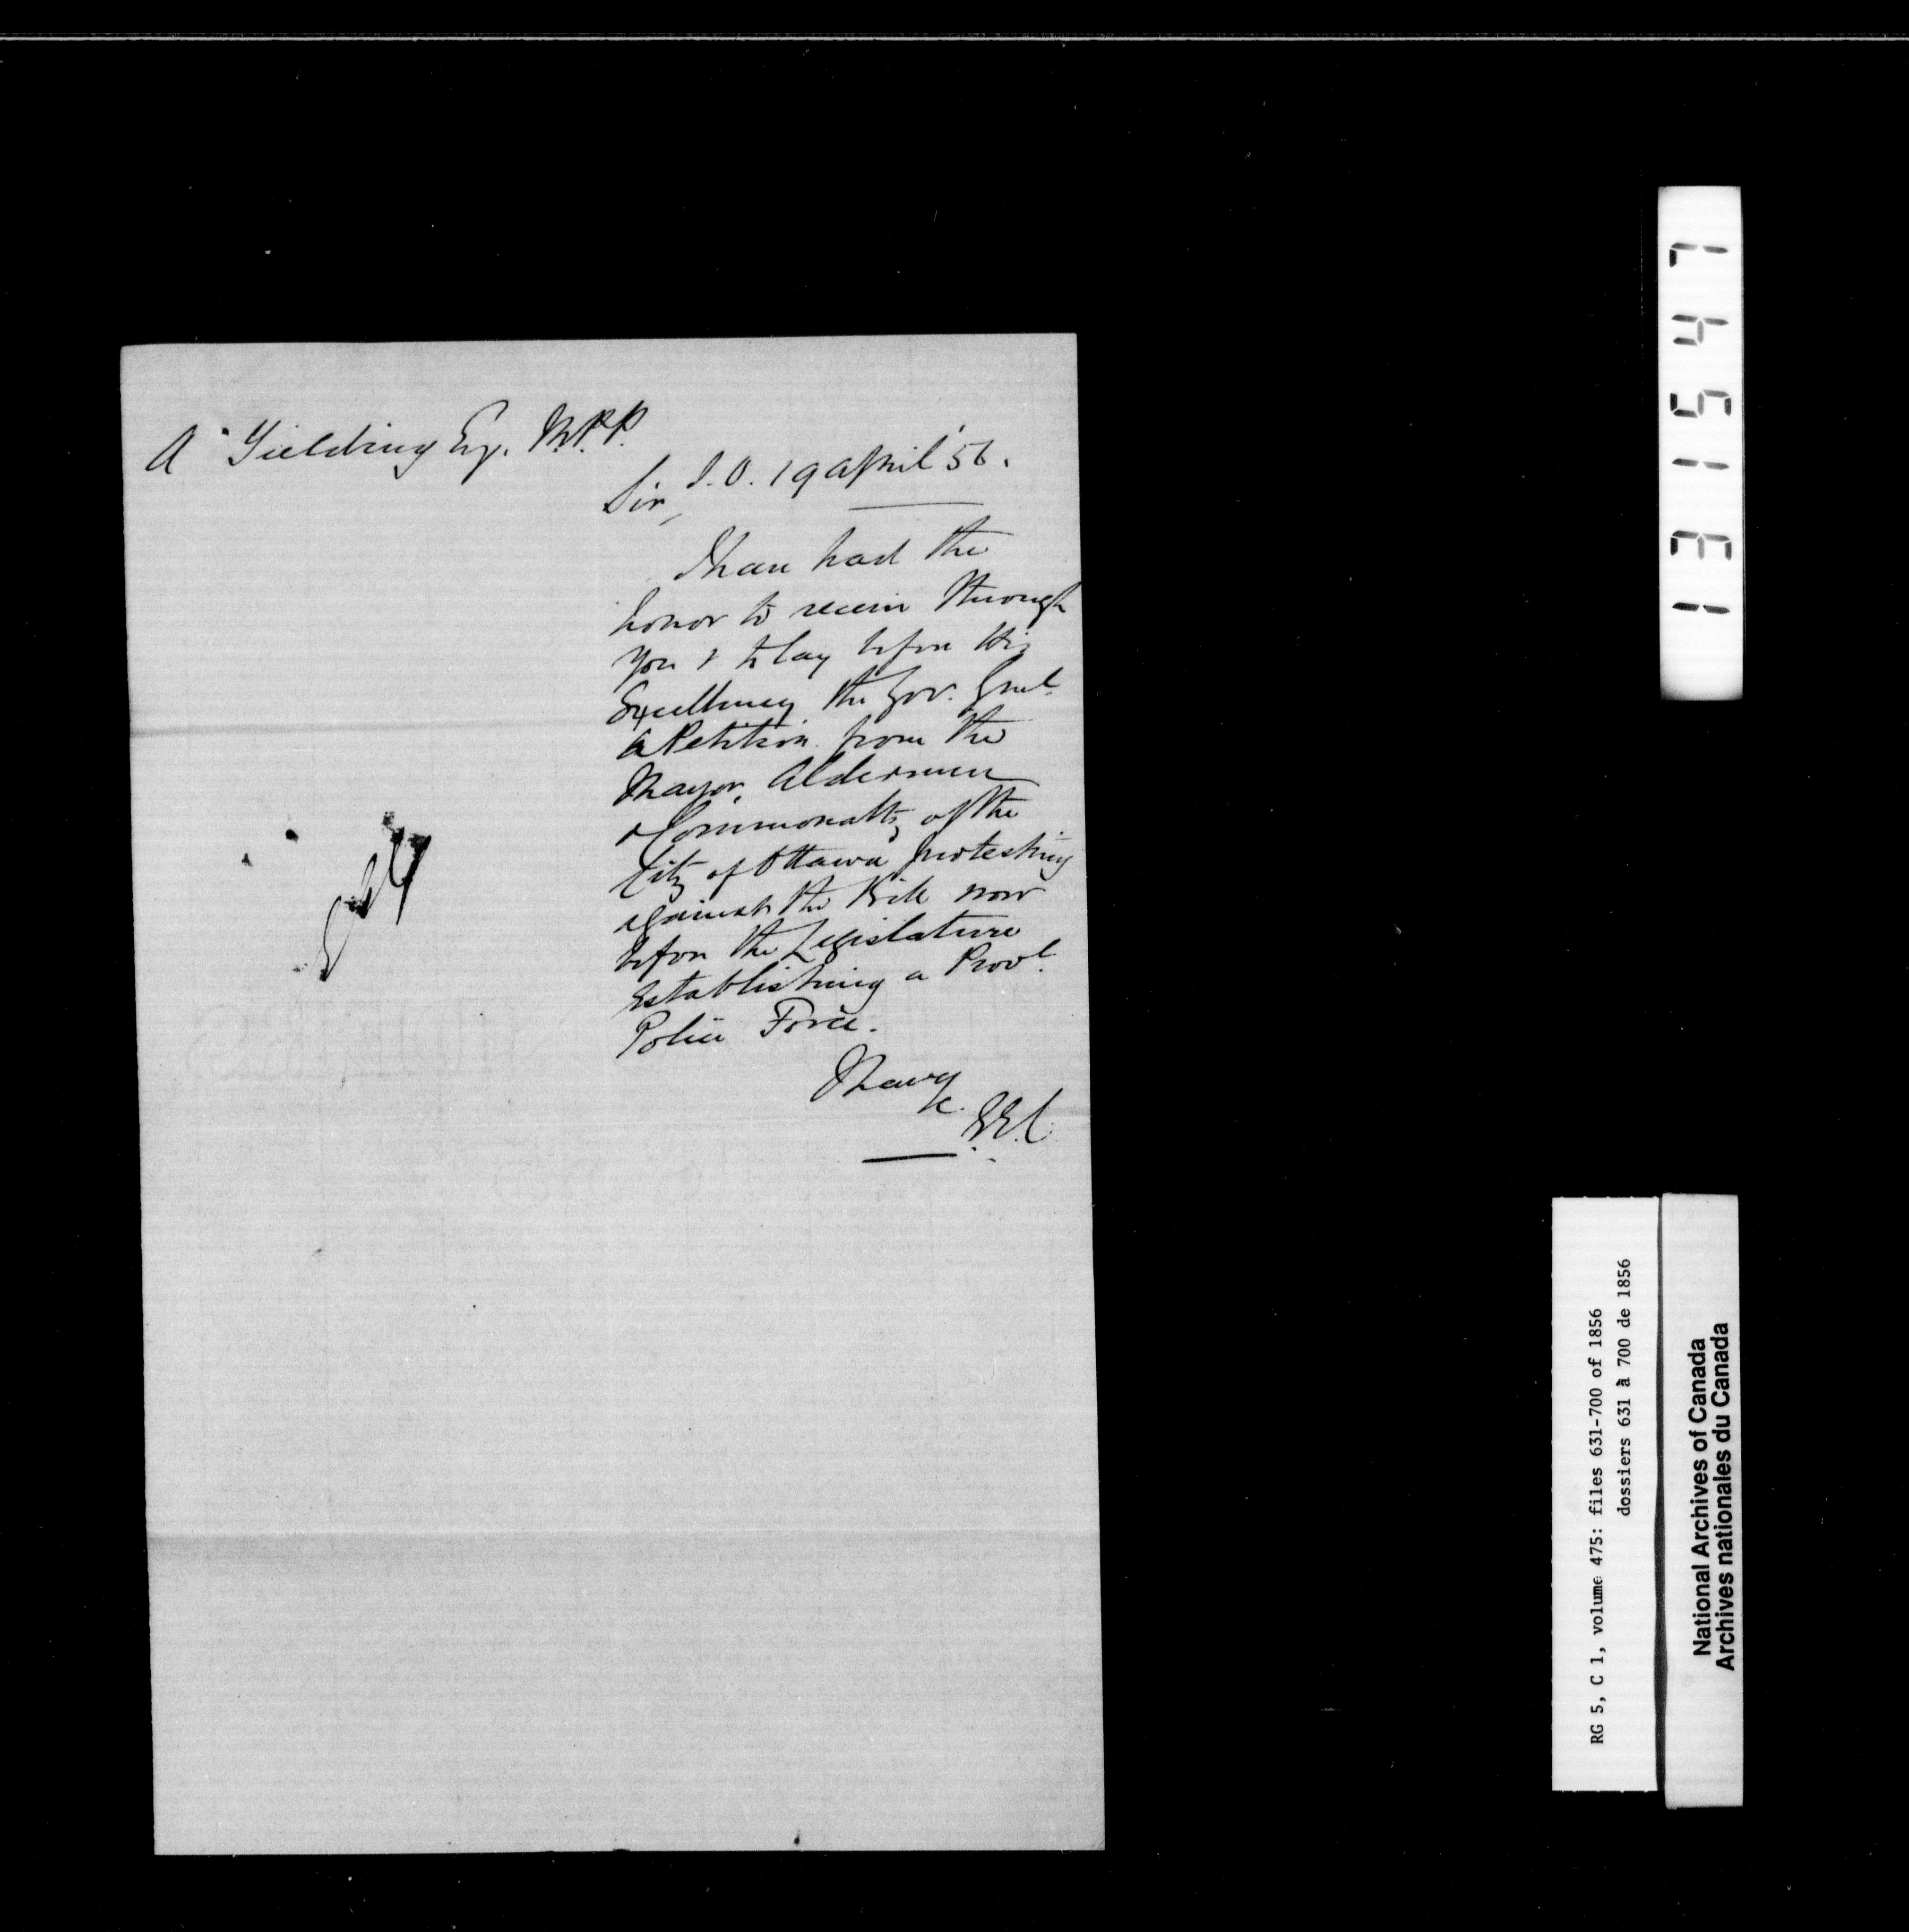 A Yielding Esq. M.P.P.
S.O. 19 April '56.
Sir,
I have had the
honor to receive through
you & to lay before His
Excellency the Gov. Genl.
a Petition from the
Mayor, Aldermen
& Commonalty of the
City of Ottawa protesting
against the Bill now
before the Legislature
Establishing a Provl.
Police Force.
I have
&c.
E.E.C.
131547
RG 5, C 1, volume 475: files 631-700 of 1856
dossiers 631 à 700 de 1856
National Archives of Canada
Archives nationales du Canada